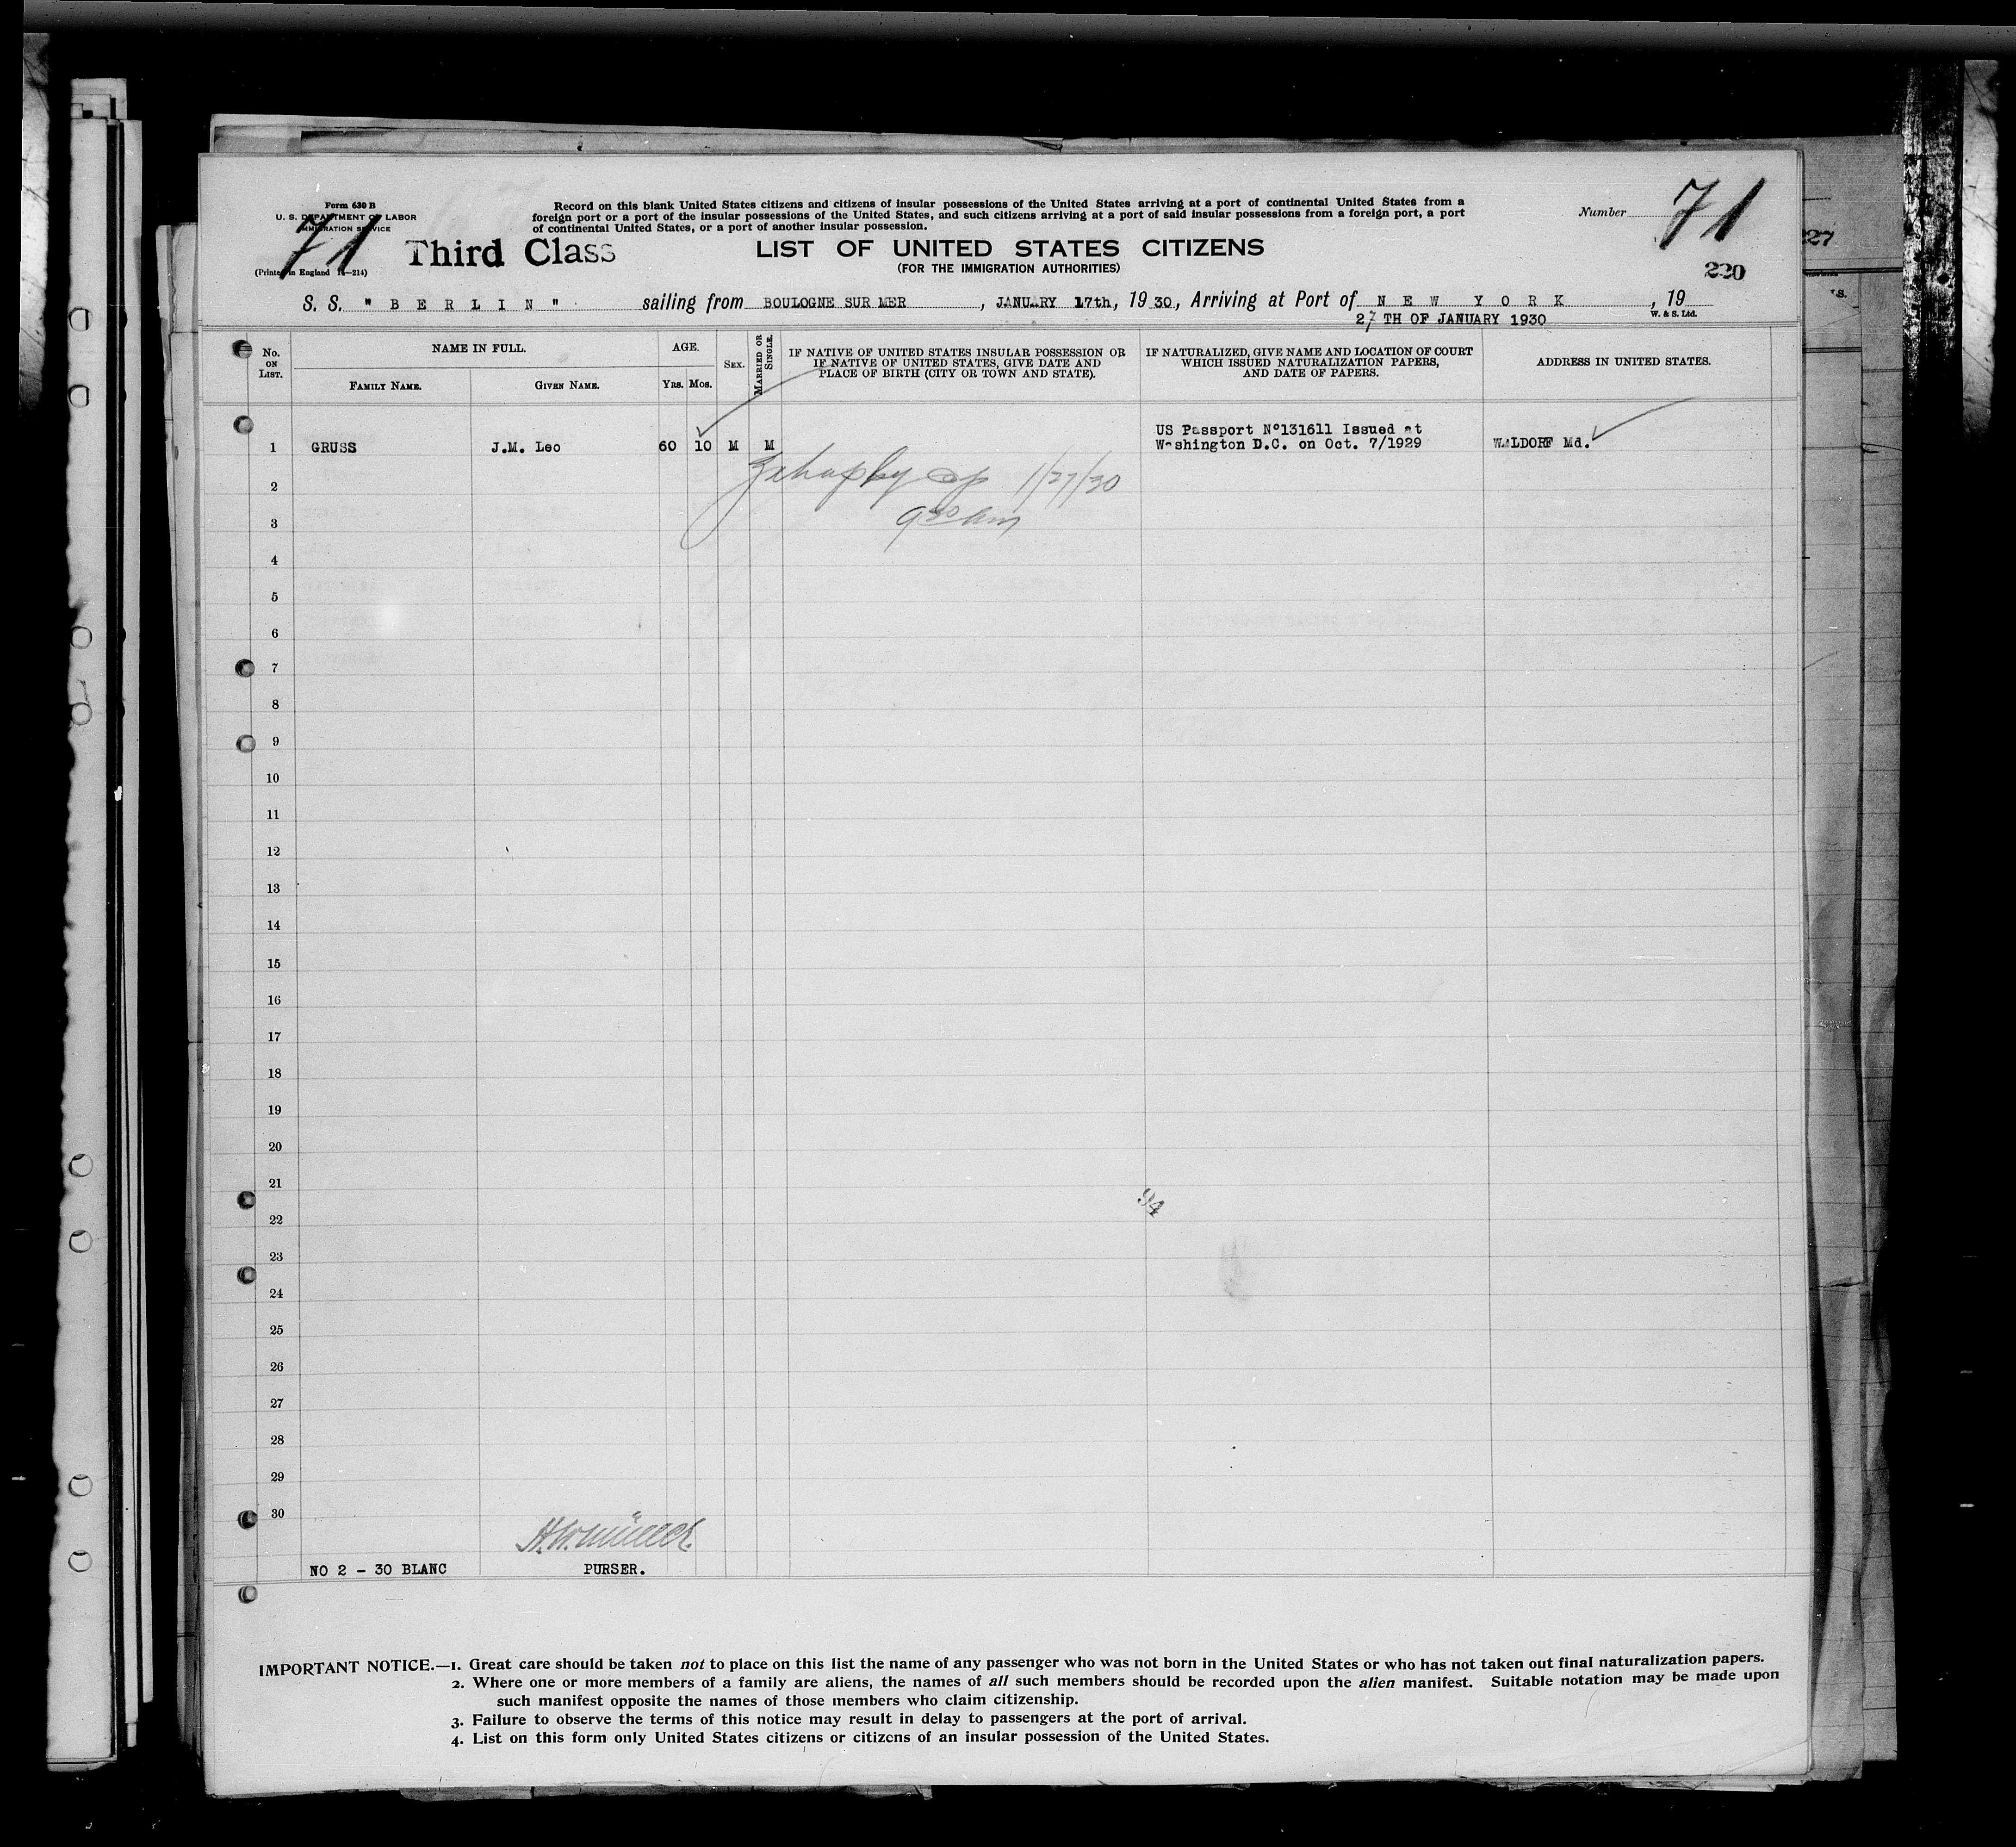 Form 630 B
U. S. DEPARTMENT OF LABOR
IMMIGRATION SERVICE
71
(Printed in England 14—214)
Third Class
Record on this blank United States citizens and citizens of insular possessions of the United States arriving at a port of continental United States from a
foreign port or a port of the insular possessions of the United States, and such citizens arriving at a port of said insular possessions from a foreign port, a port
of continental United States, or a port of another insular possession.
LIST OF UNITED STATES CITIZENS
(FOR THE IMMIGRATION AUTHORITIES)
Number 71
220
227
S. S. "BERLIN" sailing from BOULOGNE SUR MER, JANUARY 17th, 1930, Arriving at Port of NEW YORK, 19
27 TH OF JANUARY 1930
W. & S. Ltd.
No. ON LIST.
NAME IN FULL.
FAMILY NAME.
GIVEN NAME.
AGE.
YRS. MOS.
SEX.
MARRIED OR SINGLE.
IF NATIVE OF UNITED STATES INSULAR POSSESSION OR
IF NATIVE OF UNITED STATES, GIVE DATE AND
PLACE OF BIRTH (CITY OR TOWN AND STATE).
IF NATURALIZED, GIVE NAME AND LOCATION OF COURT
WHICH ISSUED NATURALIZATION PAPERS,
AND DATE OF PAPERS.
ADDRESS IN UNITED STATES.
US Passport Nº131611 Issued at
1 GRUSS J.M. Leo 60 10 M M Washington D.C. on Oct. 7/1929 WALDORF Md.
2 1/27/30
3 9 30 am
4
5
6
7
8
9
10
11
12
13
14
15
16
17
18
19
20
21
94
22
23
24
25
26
27
28
29
30
H.W. Müller
NO 2 - 30 BLANC PURSER.
IMPORTANT NOTICE.—1. Great care should be taken not to place on this list the name of any passenger who was not born in the United States or who has not taken out final naturalization papers.
2. Where one or more members of a family are aliens, the names of all such members should be recorded upon the alien manifest. Suitable notation may be made upon
such manifest opposite the names of those members who claim citizenship.
3. Failure to observe the terms of this notice may result in delay to passengers at the port of arrival.
4. List on this form only United States citizens or citizens of an insular possession of the United States.